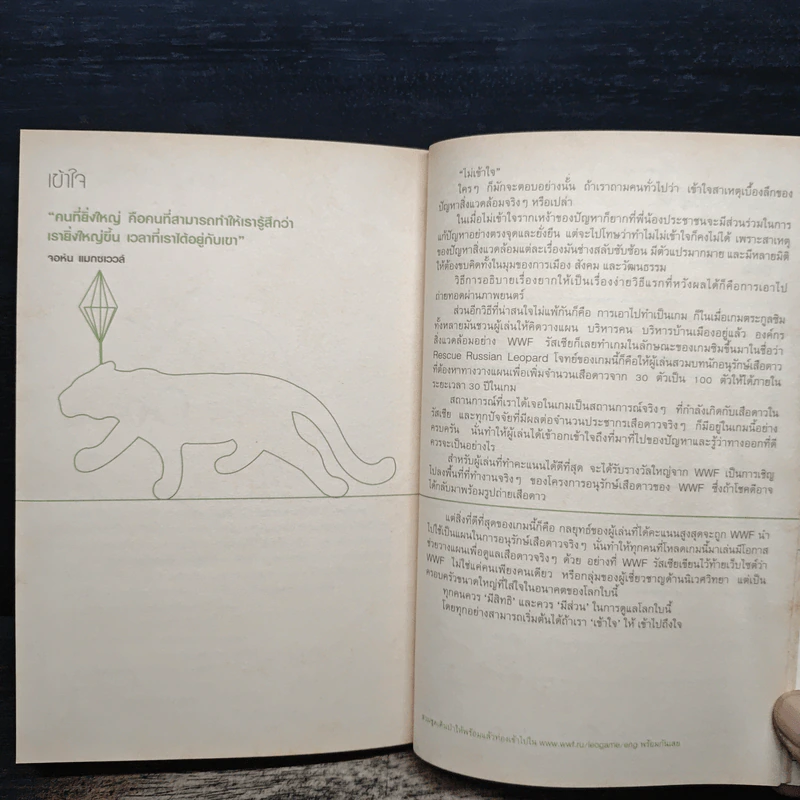 เข้าใจ
"คนที่ยิ่งใหญ่ คือคนที่สามารถทำให้เรารู้สึกว่า
เรายิ่งใหญ่ขึ้น เวลาที่เราได้อยู่กับเขา"
จอห์น แมกซเวลล์
"ไม่เข้าใจ"
ใครๆ ก็มักจะตอบอย่างนั้น ถ้าเราถามคนทั่วไปว่า เข้าใจสาเหตุเบื้องลึกของ
ปัญหาสิ่งแวดล้อมจริงๆ หรือเปล่า
ในเมื่อไม่เข้าใจรากเหง้าของปัญหาก็ยากที่พี่น้องประชาชนจะมีส่วนร่วมในการ
แก้ปัญหาอย่างตรงจุดและยั่งยืน แต่จะไปโทษว่าทำไมไม่เข้าใจก็คงไม่ได้ เพราะสาเหตุ
ของปัญหาสิ่งแวดล้อมแต่ละเรื่องมันช่างสลับซับซ้อน มีตัวแปรมากมาย และมีหลายมิติ
ให้ต้องขบคิดทั้งในมุมของการเมือง สังคม และวัฒนธรรม
วิธีการอธิบายเรื่องยากให้เป็นเรื่องง่ายวิธีแรกที่หวังผลได้ก็คือการเอาไป
ถ่ายทอดผ่านภาพยนตร์
ส่วนอีกวิธีที่น่าสนใจไม่แพ้กันก็คือ การเอาไปทำเป็นเกม ก็ในเมื่อเกมตระกูลซิม
ทั้งหลายมันชวนผู้เล่นให้คิดวางแผน บริหารคน บริหารบ้านเมืองอยู่แล้ว องค์กร
สิ่งแวดล้อมอย่าง WWF รัสเซียก็เลยทำเกมในลักษณะของเกมซิมขึ้นมาในชื่อว่า
Rescue Russian Leopard โจทย์ของเกมนี้ก็คือให้ผู้เล่นสวมบทนักอนุรักษ์เสือดาว
ที่ต้องหาทางวางแผนเพื่อเพิ่มจำนวนเสือดาวจาก 30 ตัวเป็น 100 ตัวให้ได้ภายใน
ระยะเวลา 30 ปีในเกม
สถานการณ์ที่เราได้เจอในเกมเป็นสถานการณ์จริงๆ ที่กำลังเกิดกับเสือดาวใน
รัสเซีย และทุกปัจจัยที่มีผลต่อจำนวนประชากรเสือดาวจริงๆ ก็มีอยู่ในเกมนี้อย่าง
ครบครัน นั่นทำให้ผู้เล่นได้เข้าอกเข้าใจถึงที่มาที่ไปของปัญหาและรู้ว่าทางออกที่ดี
ควรจะเป็นอย่างไร
สำหรับผู้เล่นที่ทำคะแนนได้ดีที่สุด จะได้รับรางวัลใหญ่จาก WWF เป็นการเชิญ
ไปลงพื้นที่ที่ทำงานจริงๆ ของโครงการอนุรักษ์เสือดาวของ WWF ซึ่งถ้าโชคดีอาจ
ได้กลับมาพร้อมรูปถ่ายเสือดาว
แต่สิ่งที่ดีที่สุดของเกมนี้ก็คือ กลยุทธ์ของผู้เล่นที่ได้คะแนนสูงสุดจะถูก WWF นำ
ไปใช้เป็นแผนในการอนุรักษ์เสือดาวจริงๆ นั่นทำให้ทุกคนที่โหลดเกมนี้มาเล่นมีโอกาส
ช่วยวางแผนเพื่อดูแลเสือดาวจริงๆ ด้วย อย่างที่ WWF รัสเซียเขียนไว้ท้ายเว็บไซต์ว่า
WWF ไม่ใช่แค่คนเพียงคนเดียว หรือกลุ่มของผู้เชี่ยวชาญด้านนิเวศวิทยา แต่เป็น
ครอบครัวขนาดใหญ่ที่ใส่ใจในอนาคตของโลกใบนี้
ทุกคนควร 'มีสิทธิ' และควร 'มีส่วน' ในการดูแลโลกใบนี้
โดยทุกอย่างสามารถเริ่มต้นได้ถ้าเรา 'เข้าใจ' ให้ เข้าไปถึงใจ
www.wwf.ru/leogame/eng